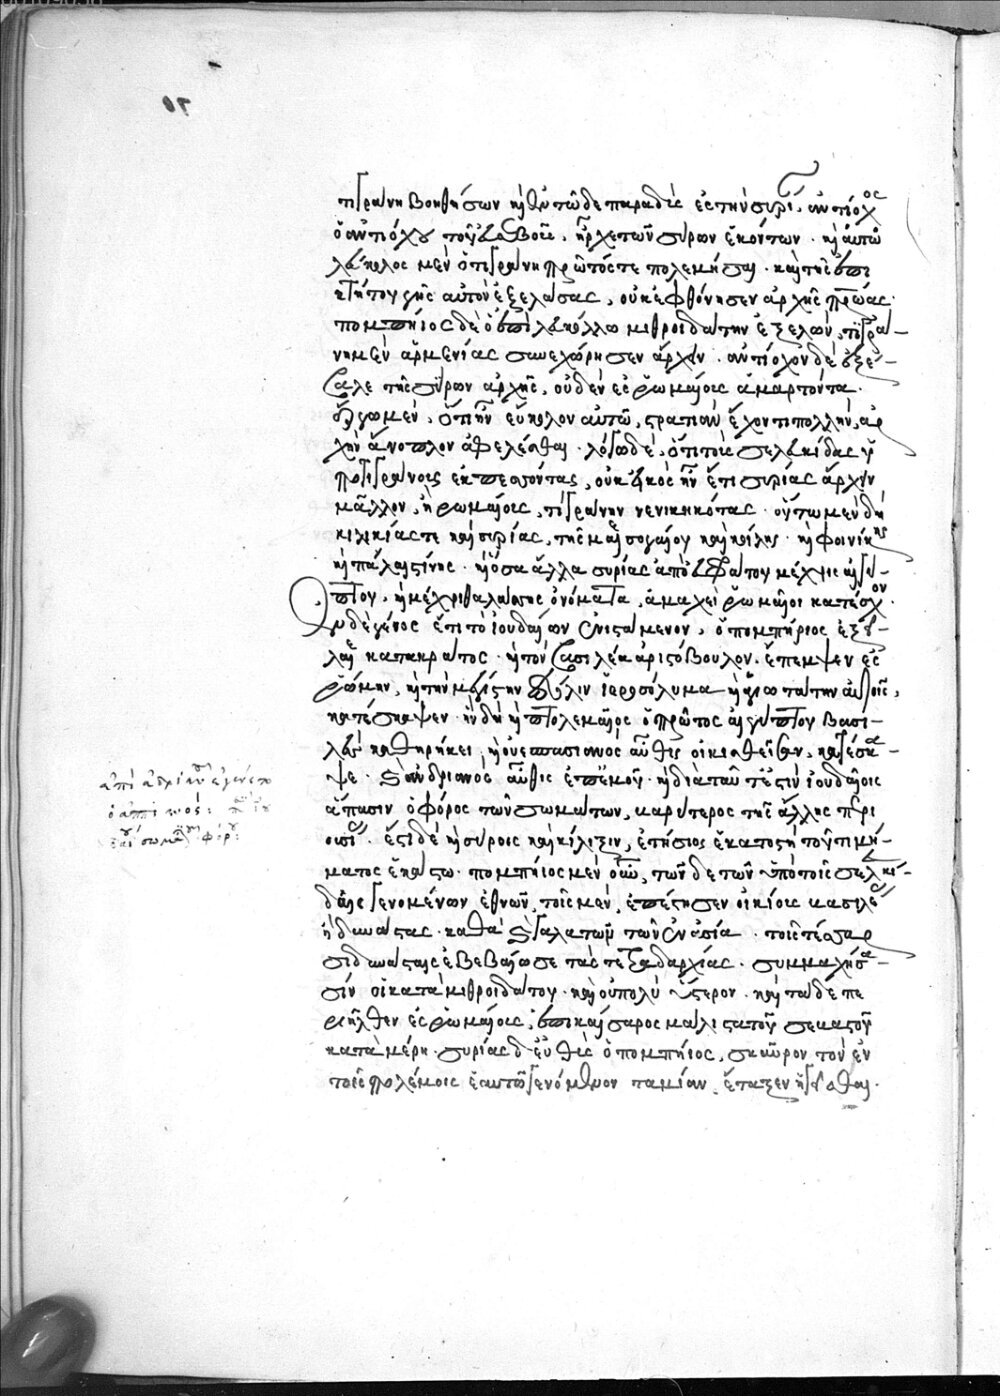 τιγράνη βοηθήσων· καὶ ἐν τῶδε παραδὺς ἐς τὴν συρίαν, ἀντίοχος
ὁ ἀντιόχου τοῦ εὐσεβοῦς, ἦρχε τῶν σύρων ἑκόντων· καὶ αὐτῶ
λεύκολος μὲν ὁ τιγράνη πρῶτός τε πολεμήσας· καὶ τῆς ἐπι
κτήτου γῆς αὐτὸν ἐξελάσας, οὐκ ἐφθόνησεν ἀρχῆς πατρώας·
πομπήιος δὲ ὁ ἐπὶ λευκόλλω μιθριδάτην ἐξελών, τιγρά-
νη μὲν ἀρμενίας συνεχώρησεν ἄρχειν· ἀντίοχον δὲ ἐξέ-
βαλε τῆς σύρων ἀρχῆς, οὐδὲν ἐς ῥωμαίους ἁμαρτόντα·
ἔργω μὲν, ὅτι ἦν εὔκολον αὐτῶ, στρατιὰν ἔχοντι πολλὴν, ἀρ
χὴν ἄνοπλον ἀφελέσθαι· λόγω δὲ, ὅτι τοὺς σελευκίδας ὑ
πὸ τιγράνους ἐκπεσόντας, οὐκ εἰκὸς ἦν ἔτι συρίας ἄρχειν
μᾶλλον, ἢ ῥωμαίους, τιγράνην νενικηκότας· οὕτω μὲν δὴ
κιλικίας τε καὶ συρίας, τῆς μεσογαίου καὶ κοίλης· καὶ φοινίκης
καὶ παλαιστίνης· καὶ ὅσα ἄλλα συρίας ἀπὸ εὐφράτου μέχρις αἰγύ-
πτου, καὶ μέχρι θαλάσσης ὀνόματα, ἀμαχεὶ ῥωμαῖοι κατέσχον·
ἓν δὲ γένος ἔτι τὸ ἰουδαίων ἐνιστάμενον, ὁ πομπήιος ἐξεῖ-
λε κατὰ κράτος· καὶ τὸν βασιλέα ἀριστόβουλον ἔπεμψεν ἐς
ῥώμην, καὶ τὴν μεγίστην πόλιν ἱεροσόλυμα καὶ ἁγιωτάτην αὐτοῖς,
κατέσκαψεν· ἣν δὴ καὶ πτολεμαῖος ὁ πρῶτος αἰγύπτου βασι-
λεὺς καθηρήκει, καὶ οὐεσπασιανὸς αὖθις οἰκισθεῖσαν, κατέσκα-
ψε· καὶ ἀδριανὸς αὖθις ἐπ' ἐμοῦ· καὶ διὰ ταῦτ' ἐστὶν ἰουδαίοις
ἅπασιν ὁ φόρος τῶν σωμάτων, βαρύτερος τῆς ἄλλης περι
ουσίας· ἔστι δὲ καὶ σύροις καὶ κίλιξιν, ἐτήσιος ἑκατοστὴ τοῦ τιμή-
ματος ἑκάστω· πομπήιος μὲν οὖν, τῶνδε τῶν ὑπὸ τοῖς σελευκί-
δαις γενομένων ἐθνῶν, τοῖς μὲν, ἐπέστησεν οἰκείους βασιλέας
ἢ δυνάστας· καθὰ καὶ γαλατῶν τῶν ἐν ἀσία· τοῖς τέσσαρ
σι δυνάσταις ἐβεβαίωσε τὰς τετραδαρχίας· συμμαχήσα-
σίν οἱ κατὰ μιθριδάτου· καὶ οὐ πολὺ ὕστερον· καὶ τάδε πε
ριῆλθεν ἐς ῥωμαίους, ἐπὶ καίσαρος μάλιστα τοῦ σεβαστοῦ
κατὰ μέρη· συρίας δ' εὐθὺς ὁ πομπήιος, σκαῦρον τὸν ἐν
τοῖς πολέμοις ἑαυτῶ γενόμενον ταμίαν, ἔταξεν ἡγεῖσθαι·
ἐπὶ ἀδριανοῦ ἐγένετο
ὁ ἀππιανός: